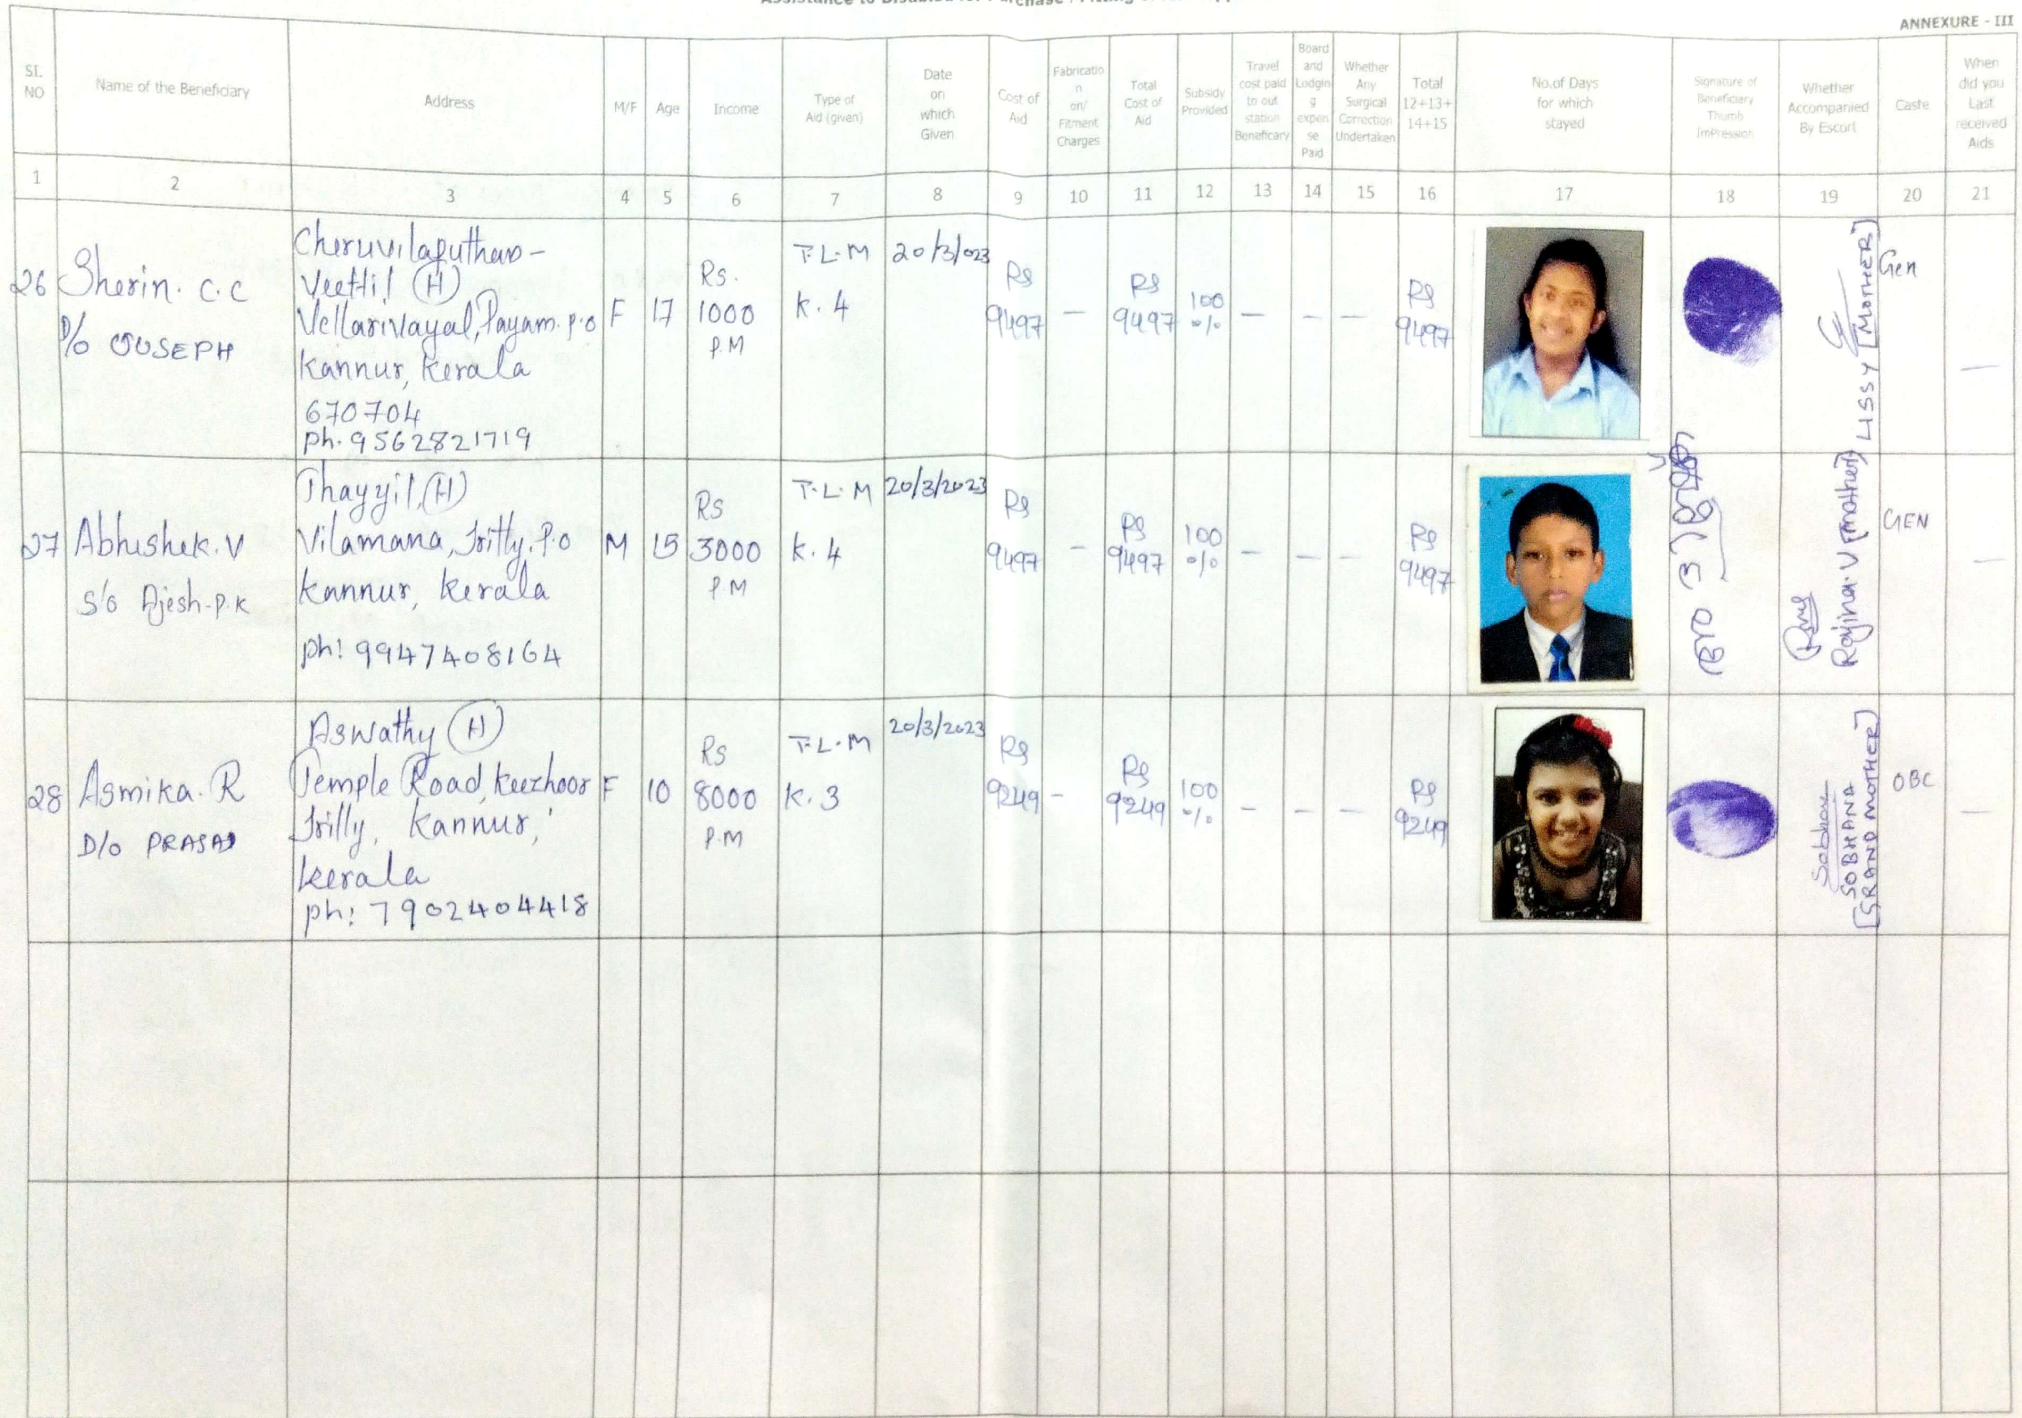 ANNEXURE - III
SI.
NO
Name of the Beneficiary
Address
M/F
Age
Income
Type of
Aid (given)
Date
on
which
Given
Cost of
Aid
Fabricatio
n
on/
Fitment
Charges
Total
Cost of
Aid
Subsidy
Provided
Travel
cost paid
to out
station
Beneficary
Board
and
Lodgin
g
expen
se
Paid
Whether
Any
Surgical
Correction
Undertaken
Total
12+13+
14+15
No.of Days
for which
stayed
Signature of
Beneficiary
Thumb
ImPression
Whether
Accompanied
By Escort
Caste
When
did you
Last
received
Aids
1 2 3 4 5 6 7 8 9 10 11 12 13 14 15 16 17 18 19 20 21
26
Sherin. C.C
D/o OUSEPH
Veettil (H)
Vellarivayal, Payam. P.O
Kannur, Kerala
670704
Ph. 9562821719
F
17
Rs.
1000
P.M
T.L.M
K. 4
20/3/023
Rs
9497
—
Rs
9497
100
%
—
—
—
Rs
9497
LISSY [MOTHER]
Gen
—
27
Abhishek. V
S/o Ajesh-P.K
Thayyil, (H)
Vilamana, Iritty. P.O
Kannur, Kerala
Ph: 9947408164
M
15
Rs
3000
P.M
T.L.M
K. 4
20/3/2023
Rs
9497
—
Rs
9497
100
%
—
—
—
Rs
9497
Rajina. V [mother]
GEN
—
28
Asmika. R
D/o PRASAD
Aswathy (H)
Temple Road, Keezhoor
Iritty, Kannur,
Kerala
Ph: 7902404418
F
10
Rs
8000
P.M
T.L.M
K. 3
20/3/2023
Rs
9249
—
Rs
9249
100
%
—
—
—
Rs
9249
Sobhana
SOBHANA
[GRAND MOTHER]
OBC
—